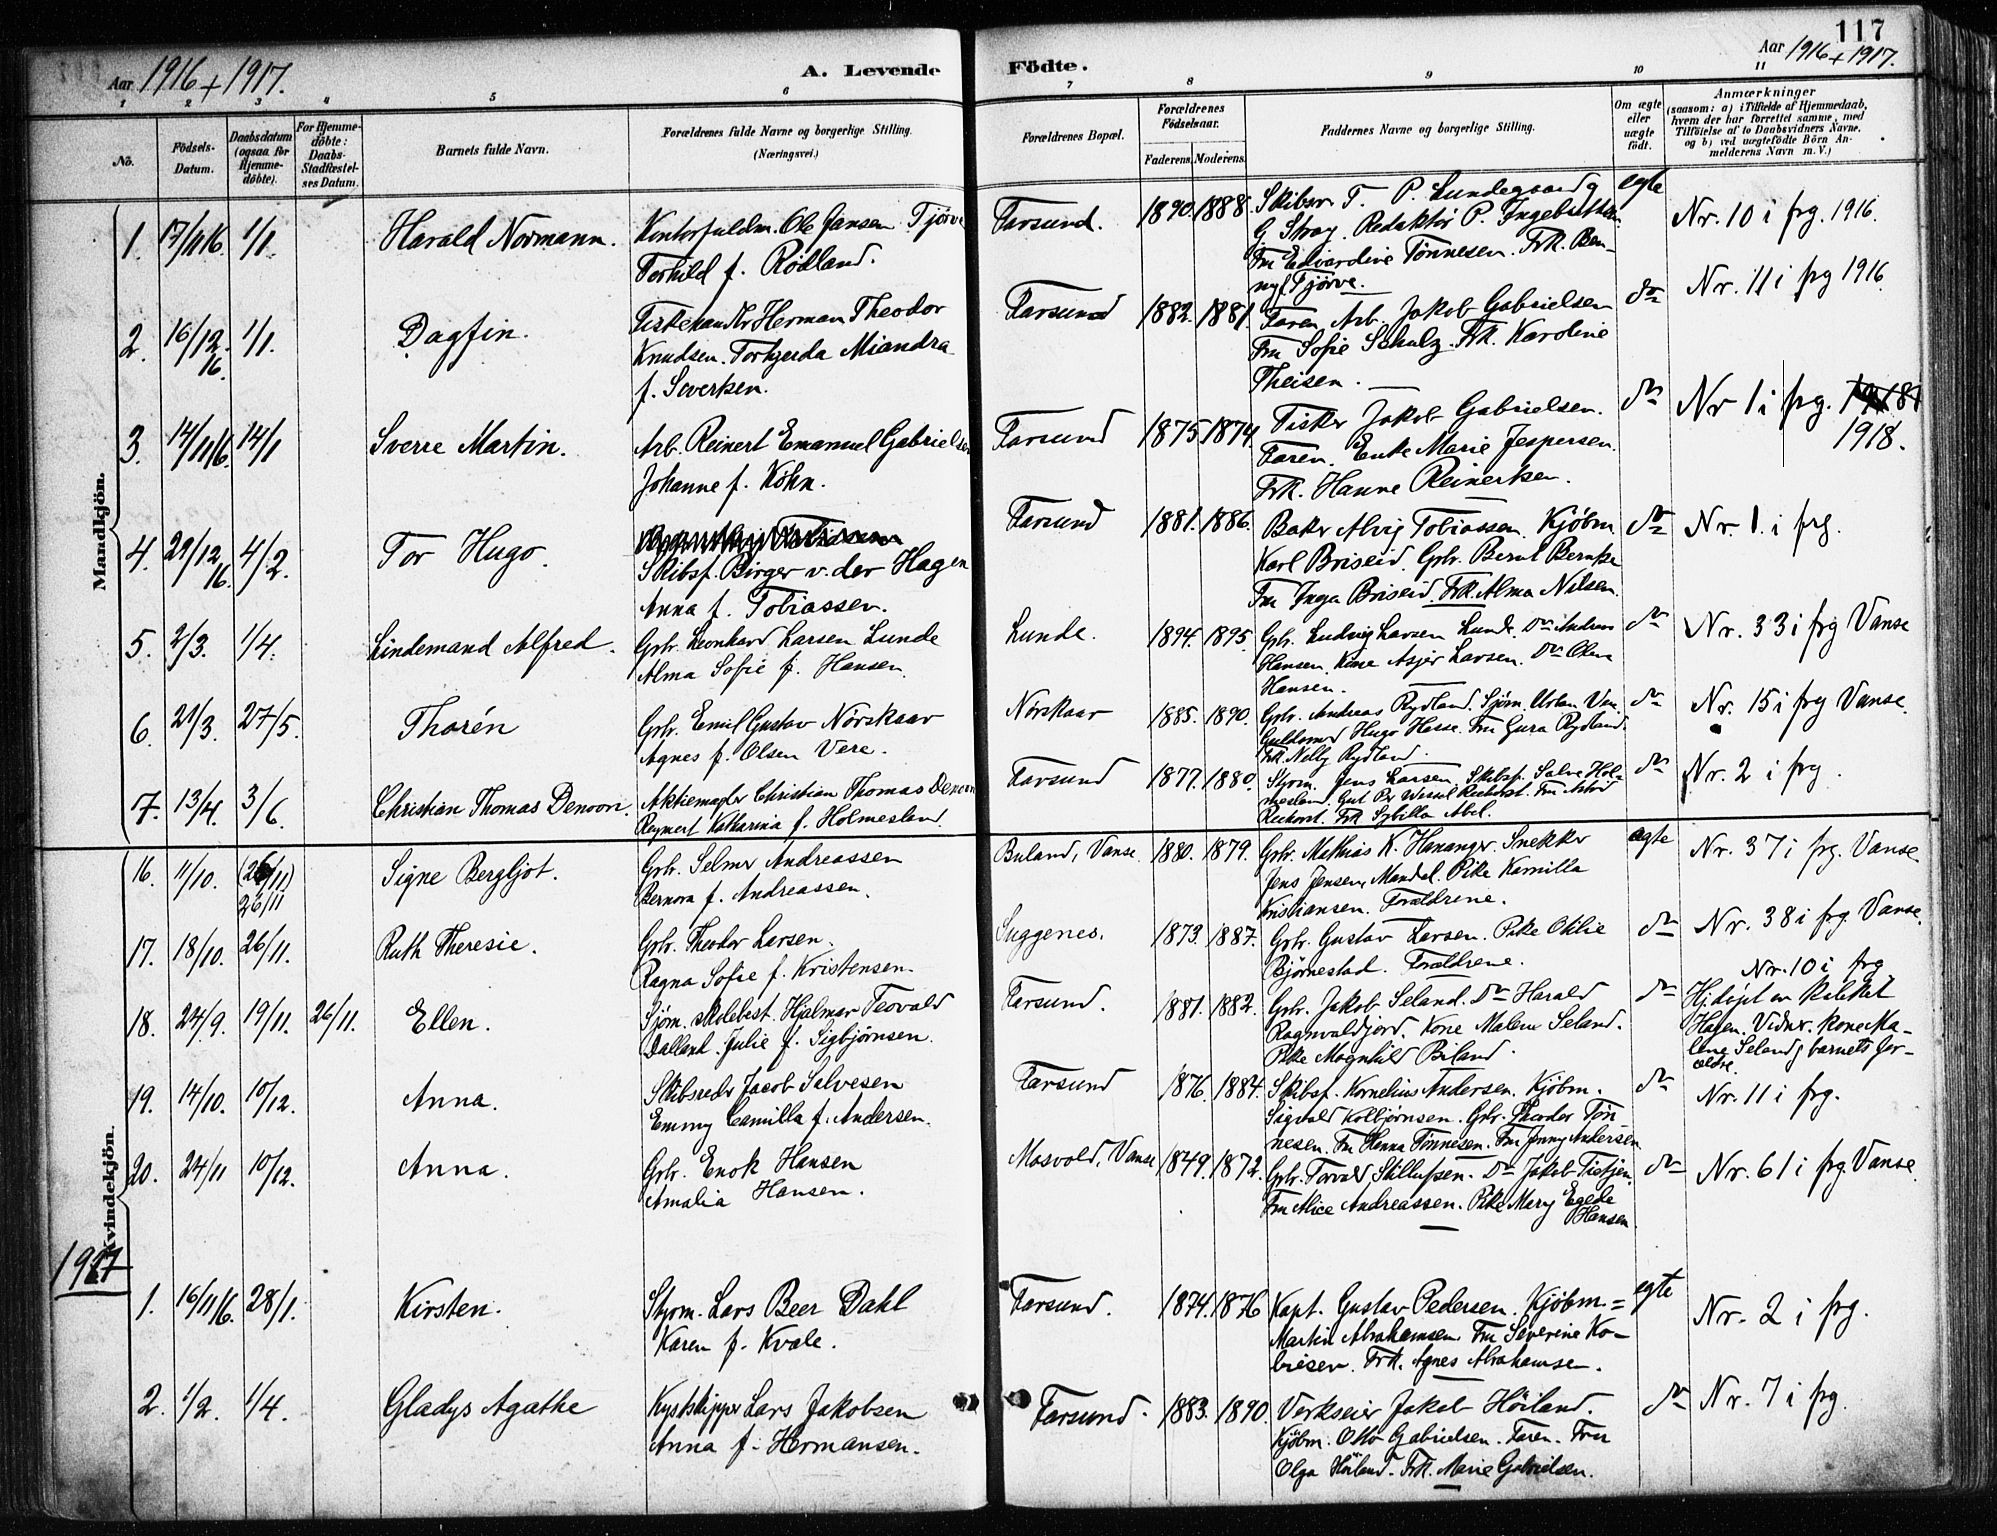 117
Aar 1916 + 1917.
A. Levende Födte.
Aar 1916 + 1917.
1 2 3 4 5 6 7 8 9 10 11
No.
Födsels-Datum.
Daabsdatum (ogsaa for Hjemme-döbte).
For Hjemme-döbte: Daabs-Stadfæstel-ses Datum.
Barnets fulde Navn.
Forældrenes fulde Navne og borgerlige Stilling.
(Næringsvei.)
Forældrenes Bopæl.
Forældrenes Födselsaar.
Faderens. Moderens.
Faddernes Navne og borgerlige Stilling.
Om ægte eller uægte födt.
Anmærkninger
(saasom: a) i Tilfælde af Hjemmedaab,
hvem der har forrettet samme, med
Tilföielse af to Daabsvidners Navne,
og b) ved uægtefödte Börn An-
melderens Navn m. V.)
Mandkjön.
1. 17/11 16. 1/1. Harald Normann. Kontorfuldm. Ole Jansen Tjørve
Torhild f. Rødland.
Farsund. 1890. 1888. Skibsr. F. P. Lundegaard g
G. Stray. Redaktør P. Ingebretsen.
Fru Edvardine Tønnesen. Frk. Ben-
ny Tjørve.
egte Nr. 10 i frg. 1916.
2. 16/12. 16. 1/1. Dagfin. Fiskehandlr Herman Theodor
Knudsen. Torbjerda Miandra
f. Severksen.
Farsund 1882. 1881. Faren, Arb. Jakob Gabrielsen
Fru Sofie Schulz. Frk. Karoline
Theisen.
do Nr. 11 i frg 1916.
3. 14/11 16. 14/1 Sverre Martin. Arb. Reinert Emanuel Gabrielsen
Johanne f. Køhn.
Farsund 1875. 1874. Fisker Jakob Gabrielsen.
Faren. Enke Marie Jespersen.
Frk. Hanne Reinertsen.
do Nr 1 i frg.
1918.
4. 29/12 16. 4/2. Tor Hugo.
Skibsf. Birger v. der Hagen
Anna f. Tobiassen.
Farsund 1881. 1886. Baker Alvig Tobiassen. Kjøbm.
Karl Briseid. Grbr. Bernt Berntse
Fru Inga Briseid. Frk. Alma Nilsen.
do Nr. 1. i frg.
5. 2/3. 1/4. Lindemand Alfred. Grbr. Leonhard Larsen Lunde
Alma Sofie f. Hansen.
Lunde. 1894. 1895. Grbr. Ludvig Larsen Lunde. Do Anders
Hansen. Kone Asjer Larsen. Do Olena
Hansen.
do Nr. 33 i frg Vanse
6. 21/3. 27/5. Thorén Grbr. Emil Gustav Nørskaar
Agnes f. Olsen Vere.
Nørskaar 1885. 1890. Grbr. Andreas Rydland. Sjøm. Urban Ver.
Guldsmed Hugo Hesse. Fru Gura Rydland.
Frk. Nelly Rydland.
do Nr. 15 i frg Vanse.
7. 13/4. 3/6. Christian Thomas Denoon. Aktiemægler Christian Thomas Denoon
Reynert Katharina f. Holmesland.
Farsund 1877. 1880. Styrm. Jens Larsen. Skibsf. Salve Hol-
mesland. Gut Per Wessel Reehorst. Fru Astrid
Reehorst. Frk. Sybilla Abel.
do Nr. 2 i frg.
Kvindekjön.
16. 11/10. (26/11) 26/11 Signe Bergljot. Grbr. Selmer Andreassen
Bernora f. Andreassen.
Buland, Vanse. 1880. 1879. Grbr. Mathias K. Hananger. Snekker
Jens Jensen, Mandal. Pike Kamilla
Kristiansen. Forældrene.
egte Nr. 37 i frg. Vanse.
17. 18/10. 26/11. Ruth Theresie. Grbr. Theodor Larsen.
Ragna Sofie f. Kristensen.
Suggenes. 1873. 1887. Grbr. Gustav Larsen. Pike Otilie
Bjørnestad. Forældrene.
do Nr. 38 i frg Vanse.
18. 24/9. 19/11. 26/11. Ellen. Sjøm. skolebest. Hjalmar Teovald
Dalland. Julie f. Sigbjørnsen.
Farsund. 1881. 1882. Grbr. Jakob Seland. Do Harald
Ragnvaldjord. Kone Malene Seland.
Pike Magnhild Biland.
do Nr. 10 i frg
Hj.døpt av kateket
Hagen. Vidnr. kone Ma-
lene Seland g barnets for-
ældre.
19. 14/10. 10/12. Anna. Skibsreder Jacob Salvesen
Emmy Camilla f. Andersen.
Farsund 1876. 1884. Skibsf. Kornelius Andersen. Kjøbm.
Sigvald Kolbjørnsen. Grbr. Theodor Tøn-
nesen. Fru Hanna Tønnesen. Fru Jenny Andersen
do Nr. 11 i frg.
20. 24/11 10/12. Anna. Grbr. Enok Hansen
Amalia Hansen.
Mosvold, Vanse 1849. 1872. Grbr. Torvald Stillufsen. Do Jakob Tietjen.
Fru Alice Andreassen. Pike Mary Egede
Hansen.
do Nr. 61 i frg Vanse.
1917
1. 16/11 16. 28/1. Kirsten. Styrm. Lars Beer Dahl
Karen f. Kvale.
Farsund. 1874. 1876 Kapt. Gustav Pedersen. Kjøbm.=
Martin Abrahamsen. Fru Severine Ko-
briesen. Frk. Agnes Abrahamsen.
egte Nr. 2 i frg.
2. 1/2. 1/4. Gladys Agathe Kystskipper Lars Jakobsen
Anna f. Hermansen.
Farsund. 1883. 1890 Verkseier Jakob Höiland.
Kjøbm. Otto Gabrielsen. Faren. Fru
Olga Höiland. Frk. Marie Gabrielsen.
do Nr. 7 i frg.